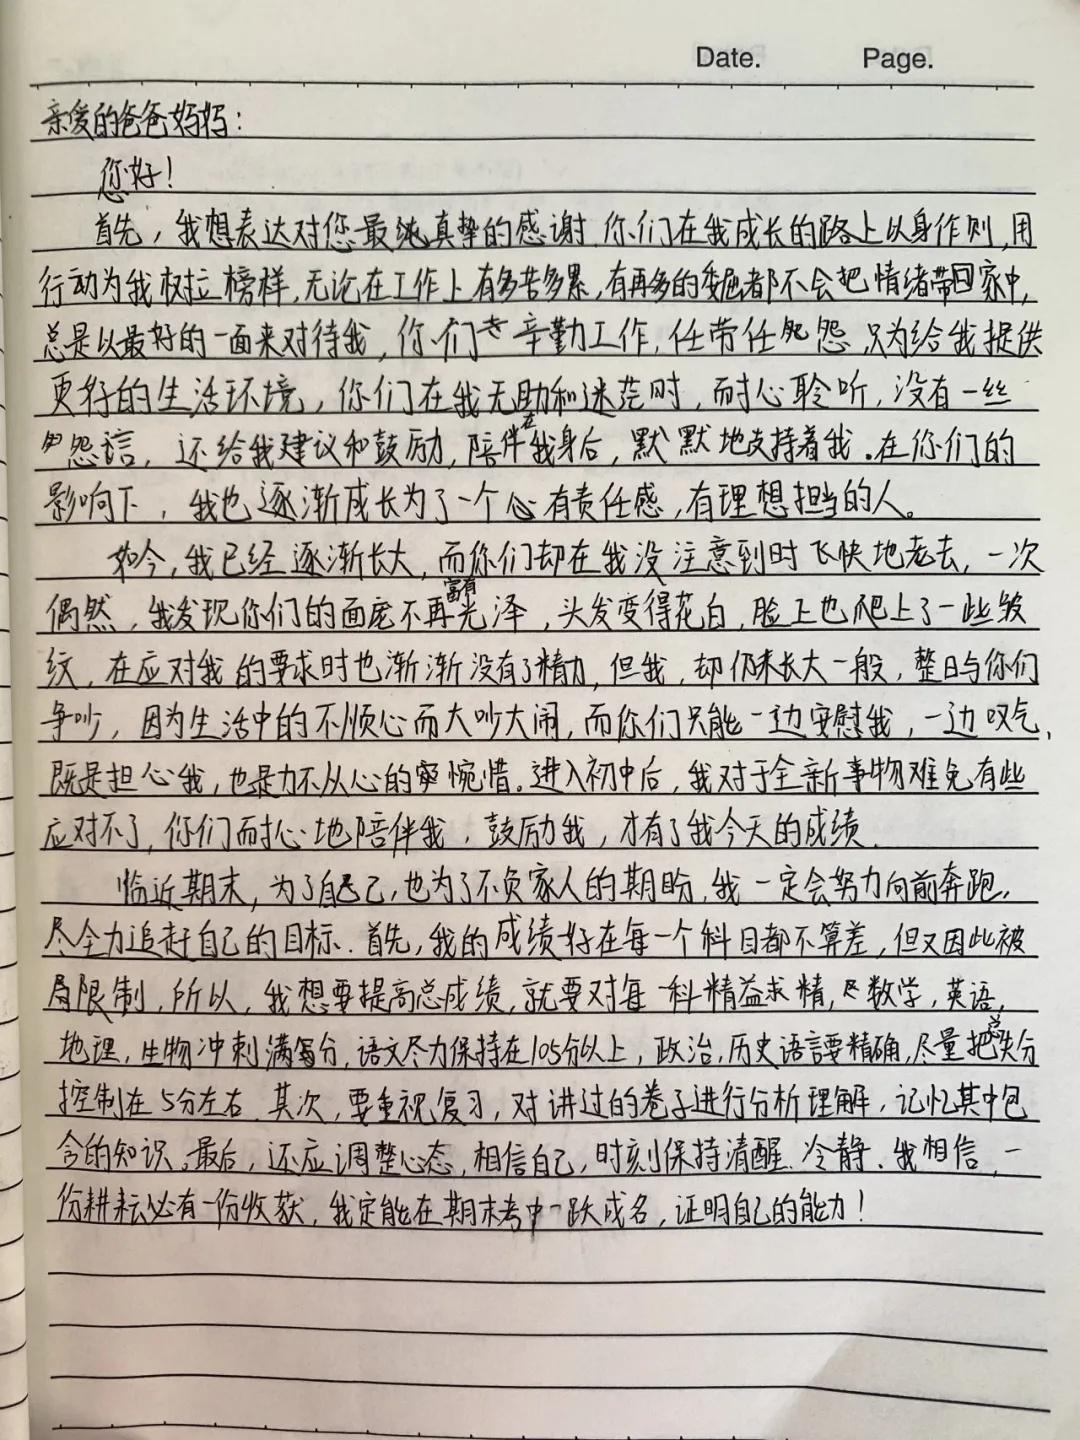 Date. Page.
亲爱的爸爸妈妈：
您好！
首先，我想表达对您最纯真挚的感谢.你们在我成长的路上以身作则,用
行动为我树立榜样,无论在工作上有多苦多累,有再多的委屈都不会把情绪带回家中,
总是以最好的一面来对待我,你们辛勤工作,任劳任怨,只为给我提供
更好的生活环境,你们在我无助和迷茫时,耐心聆听,没有一丝
怨言,还给我建议和鼓励,陪伴在我身后,默默地支持着我.在你们的
影响下,我也逐渐成长为了一个心有责任感,有理想担当的人。
如今,我已经逐渐长大,而你们却在我没注意到时飞快地老去,一次
偶然,我发现你们的面庞不再富有光泽,头发变得花白,脸上也爬上了一些皱
纹,在应对我的要求时也渐渐没有了精力,但我,却仍未长大一般,整日与你们
争吵,因为生活中的不顺心而大吵大闹,而你们只能一边安慰我,一边叹气,
既是担心我,也是力不从心的惋惜.进入初中后,我对于全新事物难免有些
应对不了,你们耐心地陪伴我,鼓励我,才有了我今天的成绩.
临近期末,为了自己,也为了不负家人的期盼,我一定会努力向前奔跑,
尽全力追赶自己的目标.首先,我的成绩好在每一个科目都不算差,但又因此被
局限制,所以,我想要提高总成绩,就要对每一科精益求精,数学,英语,
地理,生物冲刺满分,语文尽力保持在105分以上,政治,历史语言要精确,尽量把总失分
控制在5分左右.其次,要重视复习,对讲过的卷子进行分析理解,记忆其中包
含的知识.最后,还应调整心态,相信自己,时刻保持清醒.冷静.我相信,一
份耕耘必有一份收获,我定能在期末考中一跃成名,证明自己的能力!